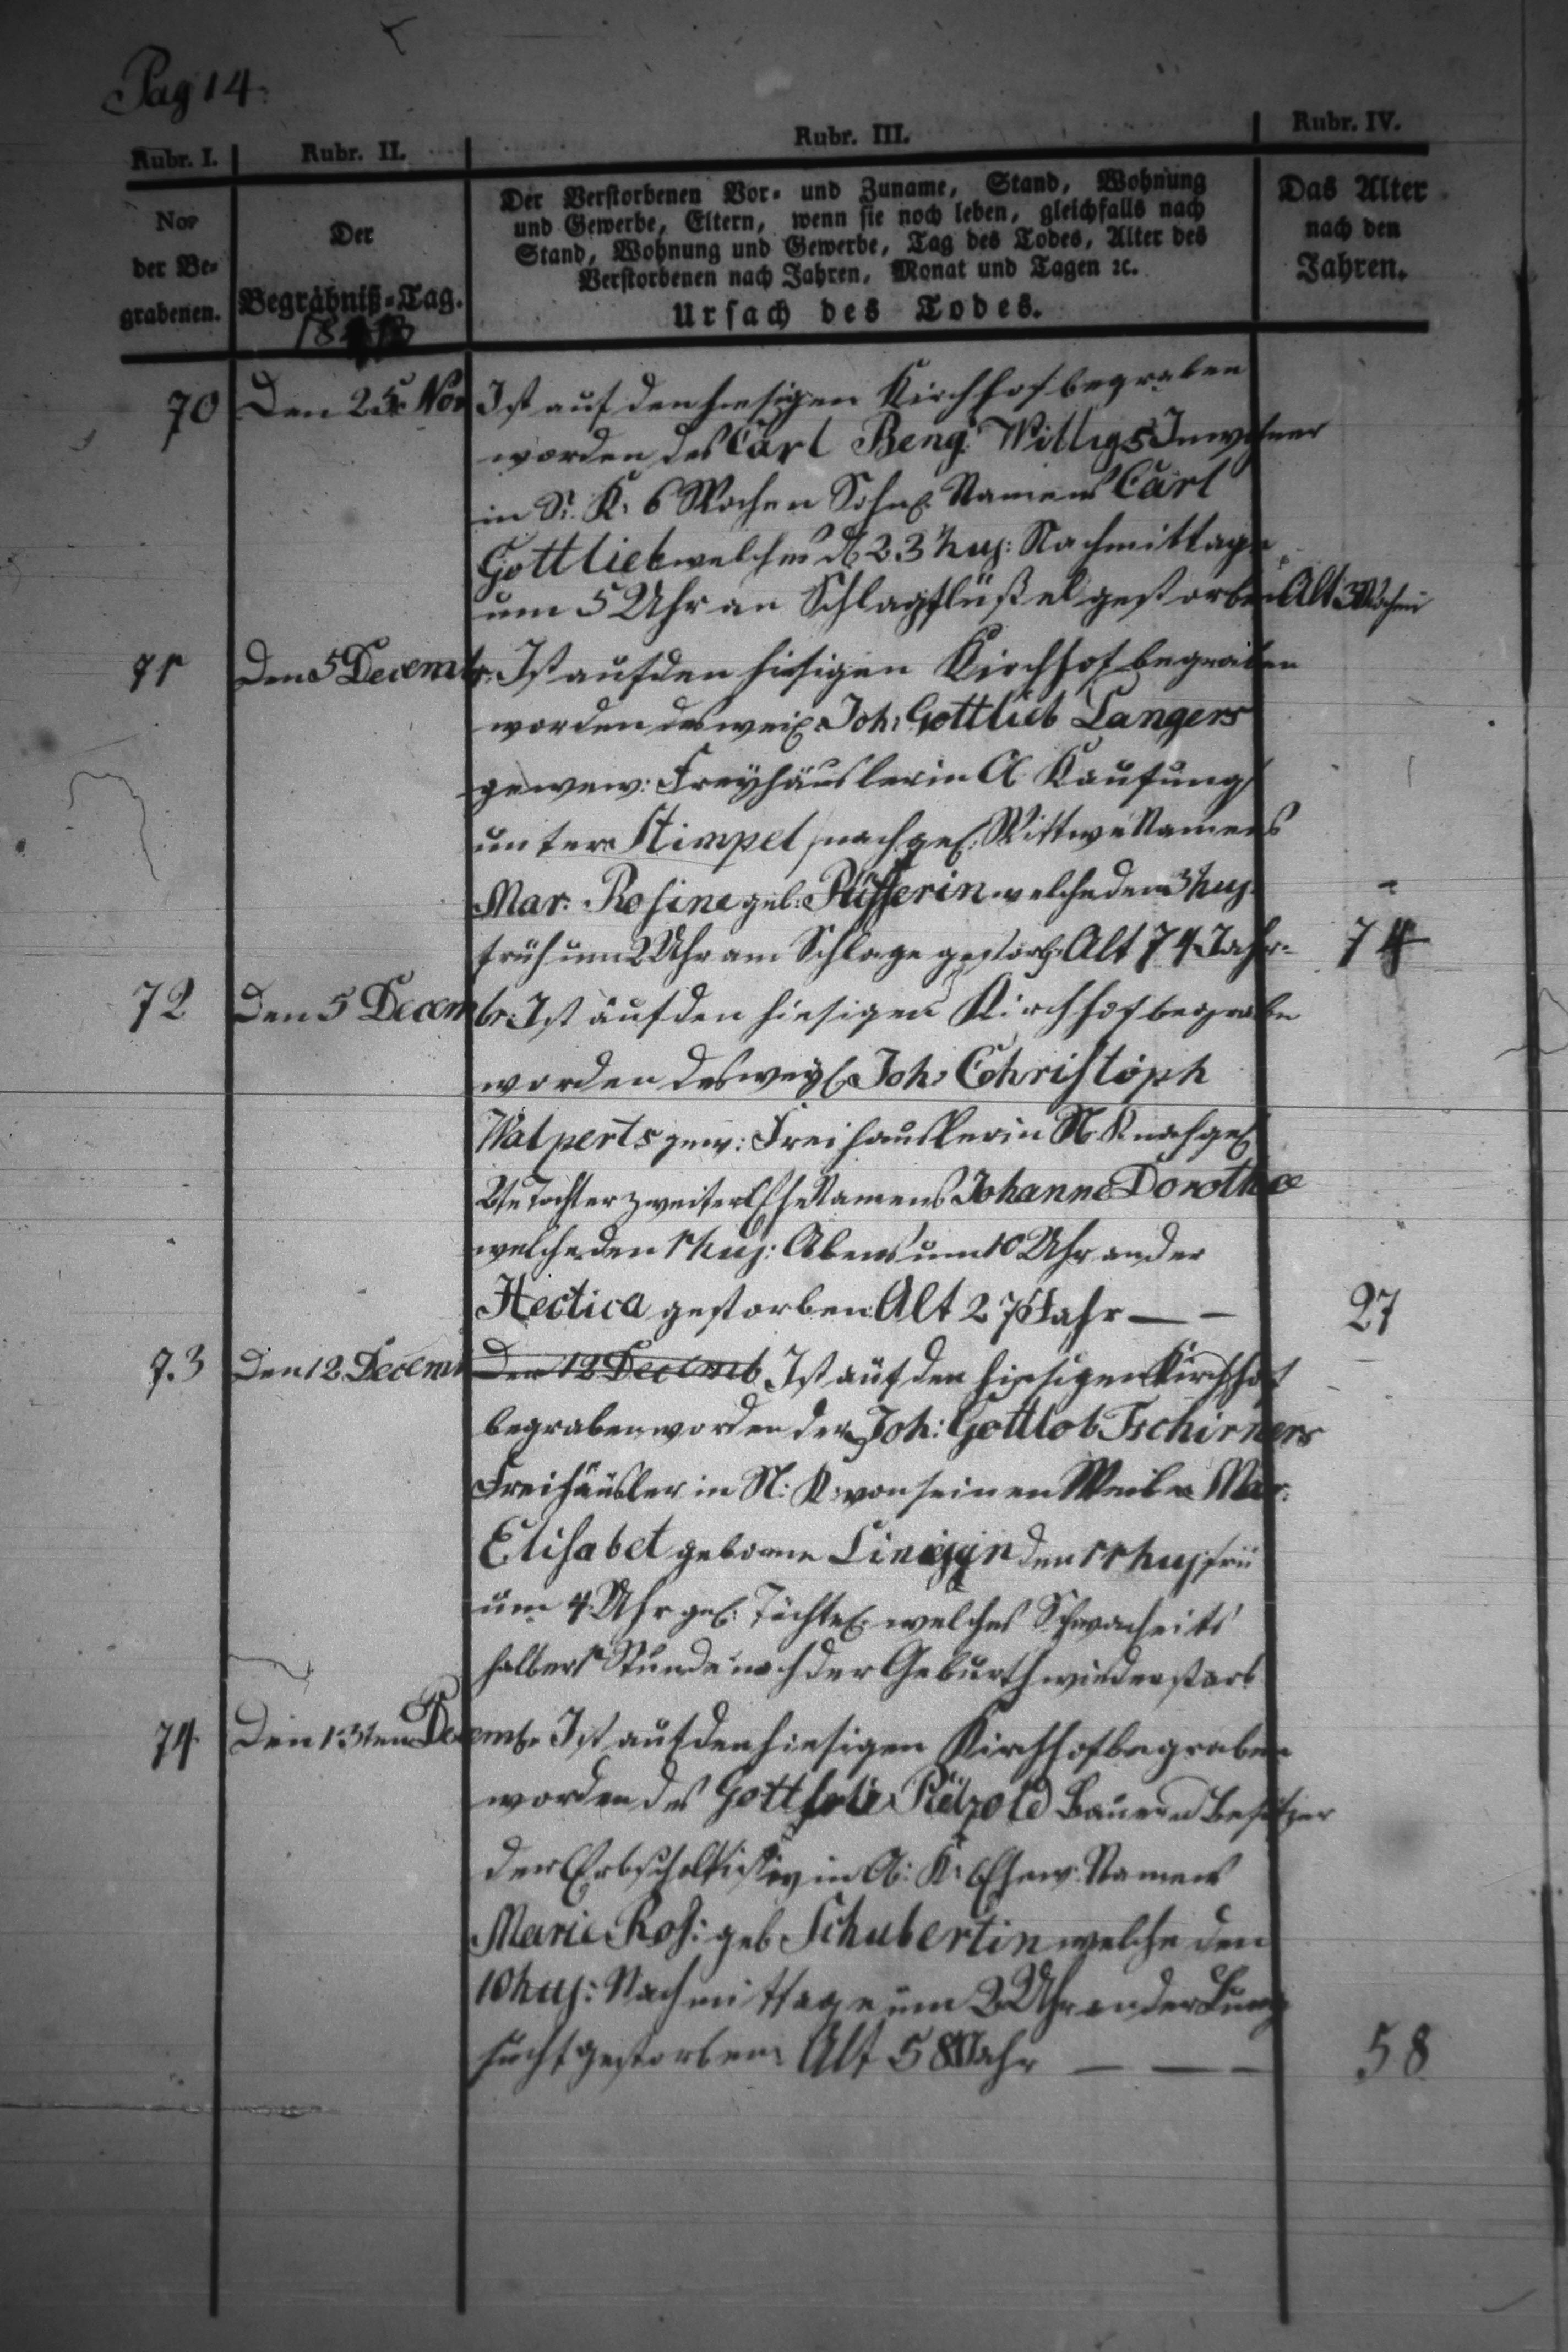 Pag 14.
Rubr. I. Rubr. II. Rubr. III. Rubr. IV.
No der Be-grabenen.
Der Begräbniß-Tag.
Der Verstorbenen Vor- und Zuname, Stand, Wohnung
und Gewerbe, Eltern, wenn sie noch leben, gleichfalls nach
Stand, Wohnung und Gewerbe, Tag des Todes, Alter des
Verstorbenen nach Jahren, Monat und Tagen ꝛc.
Ursach des Todes.
Das Alter nach den Jahren.
70 Den 25. Nov Ist auf den hiesigen Kirchhof begraben
worden des Carl Benj: Willigs Inwohner
in K: 6 Wochen Namens Carl
Gottlieb welcher d 23 huj: Nachmittage
um 5 Uhr an Schlagflüßel gestorben Alt 3 Wochen
71 Den 5 Decembr. Ist auf den hiesigen Kirchhof begraben
worden des Joh: Gottlieb Langers
Freyhäusler in Kaufung
unter Stimpel Wittwe Namens
Mar: Rosine geb: welche den 3 huj:
früh um 2 Uhr am Schlage gestorb Alt 74 Jahr- 74
72 Den 5 Decembr: Ist auf den hiesigen Kirchhof begraben
worden des weyl Joh: Cohristoph
Walperts gew: Freihausler in N K
Tochter zweiter Ehe Namens Johanne Dorothee
welche den 1 huj: Abens um 10 Uhr an der
Hectica gestorben Alt 27 Jahr — — 27
73 Den 12 Decemb Den 12 Decemb Ist auf den hiesigen Kirchhof
begraben worden der Joh: Gottlob Tschirners
Freihäusler in N: K: von seinen Weibe Mar:
Elisabet geborne den 11 huj: frü
um 4 Uhr welches Schwacheits
halber 1 Stunde nach der Geburth wieder starb
74 Den 13ten Decembr Ist auf den hiesigen Kirchhof begraben
worden des Bauern Besitzer
der Erbscholtisey in K: Ehew: Namens
Marie Ros: geb Schubertin welche den
10 huj: Nachmittage um 2 Uhr an der Lung
sucht gestorben Alt 58 Jahr — — — 58